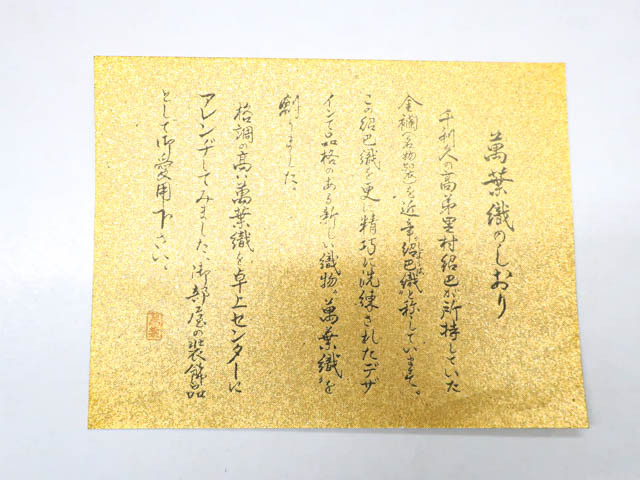 萬葉織のしおり
千利久の高弟里村紹巴が所持していた
金襴(名物裂)を近年紹巴織と称しています。
この紹巴織を更に精巧に洗練されたデザ
インで品格のある新しい織物“萬葉織”を
創りました。
格調の高い萬葉織を卓上センターに
アレンヂしてみました、御部屋の装飾品
として御愛用下さい、